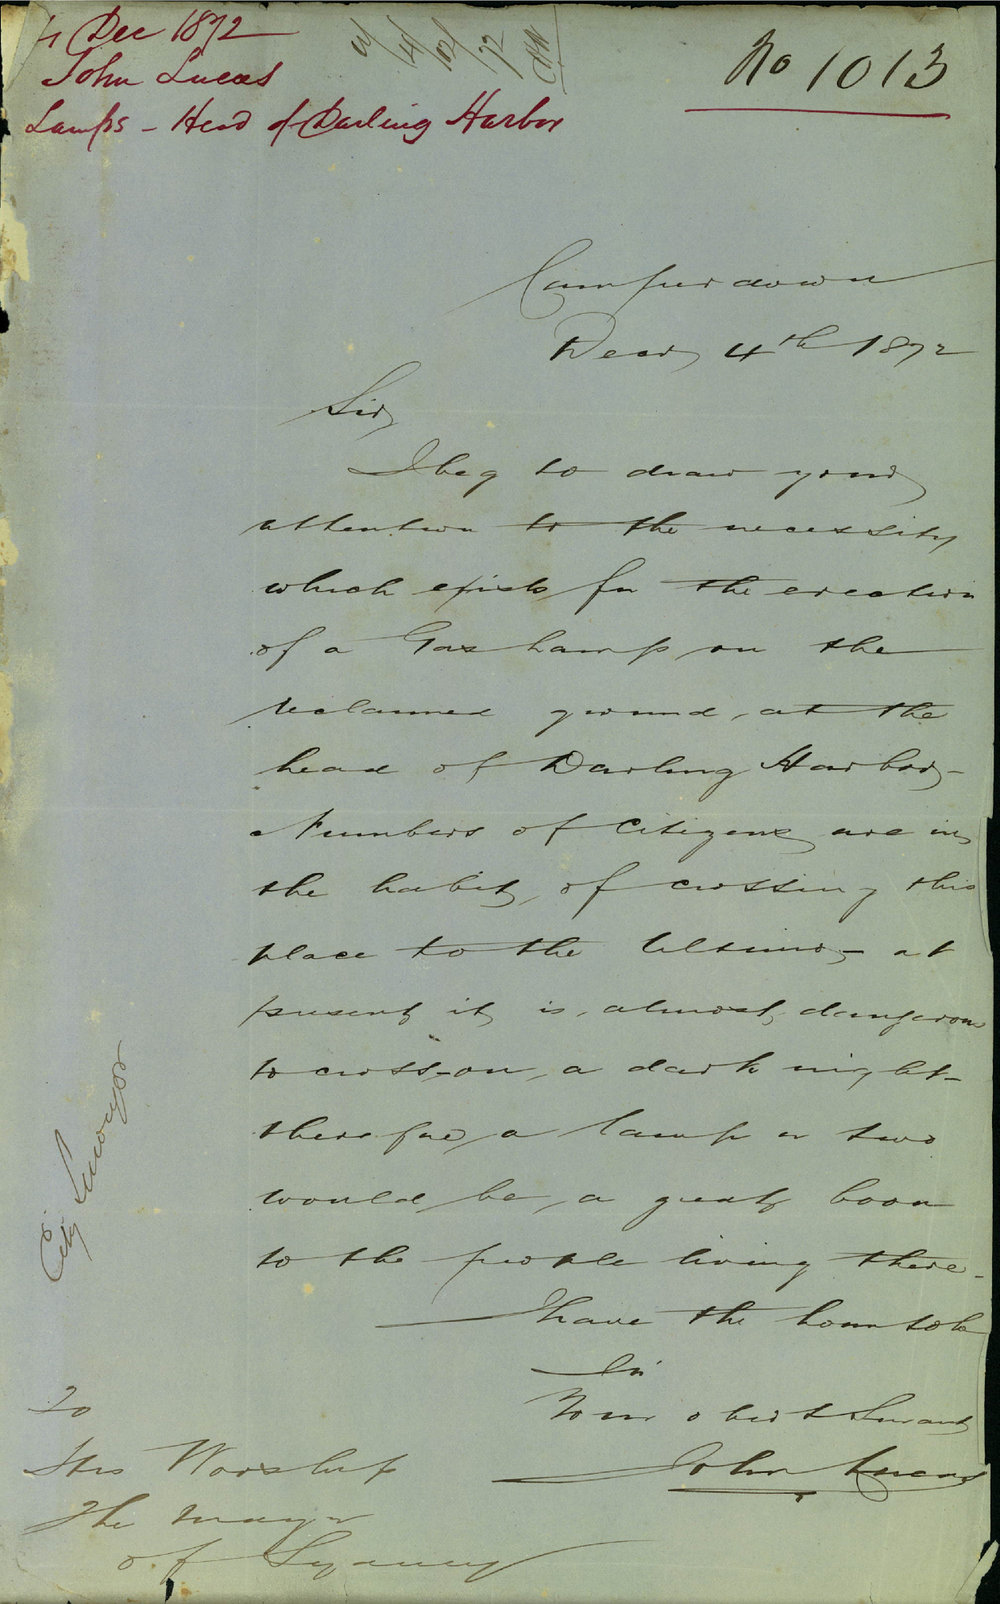 4 Dec 1872
John Lucas
Lamps - Head of Darling Harbor
No 1013
Camperdown
Decr 4th 1872
Sir
I beg to draw your
attention to the necessity
which exists for the erection
of a Gas Lamp on the
reclaimed ground, at the
head of Darling Harbor -
Numbers of Citizens are in
the habit, of crossing this
place to the Ultimo - at
present it is, almost, dangerous
to cross - on, a dark night -
therefore, a lamp or two
would be, a great boon
to the people living there -
I have the honor to be
Sir
Your obedt Servant
John Lucas
City Surveyor
To
His Worship
The Mayor
of Sydney